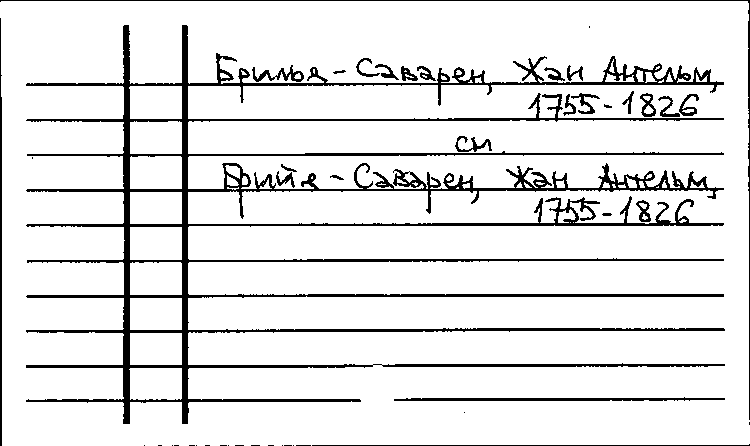 Брилья-Саварен, Жан Антельм,
1755-1826
см.
Брийя-Саварен, Жан Антельм,
1755-1826